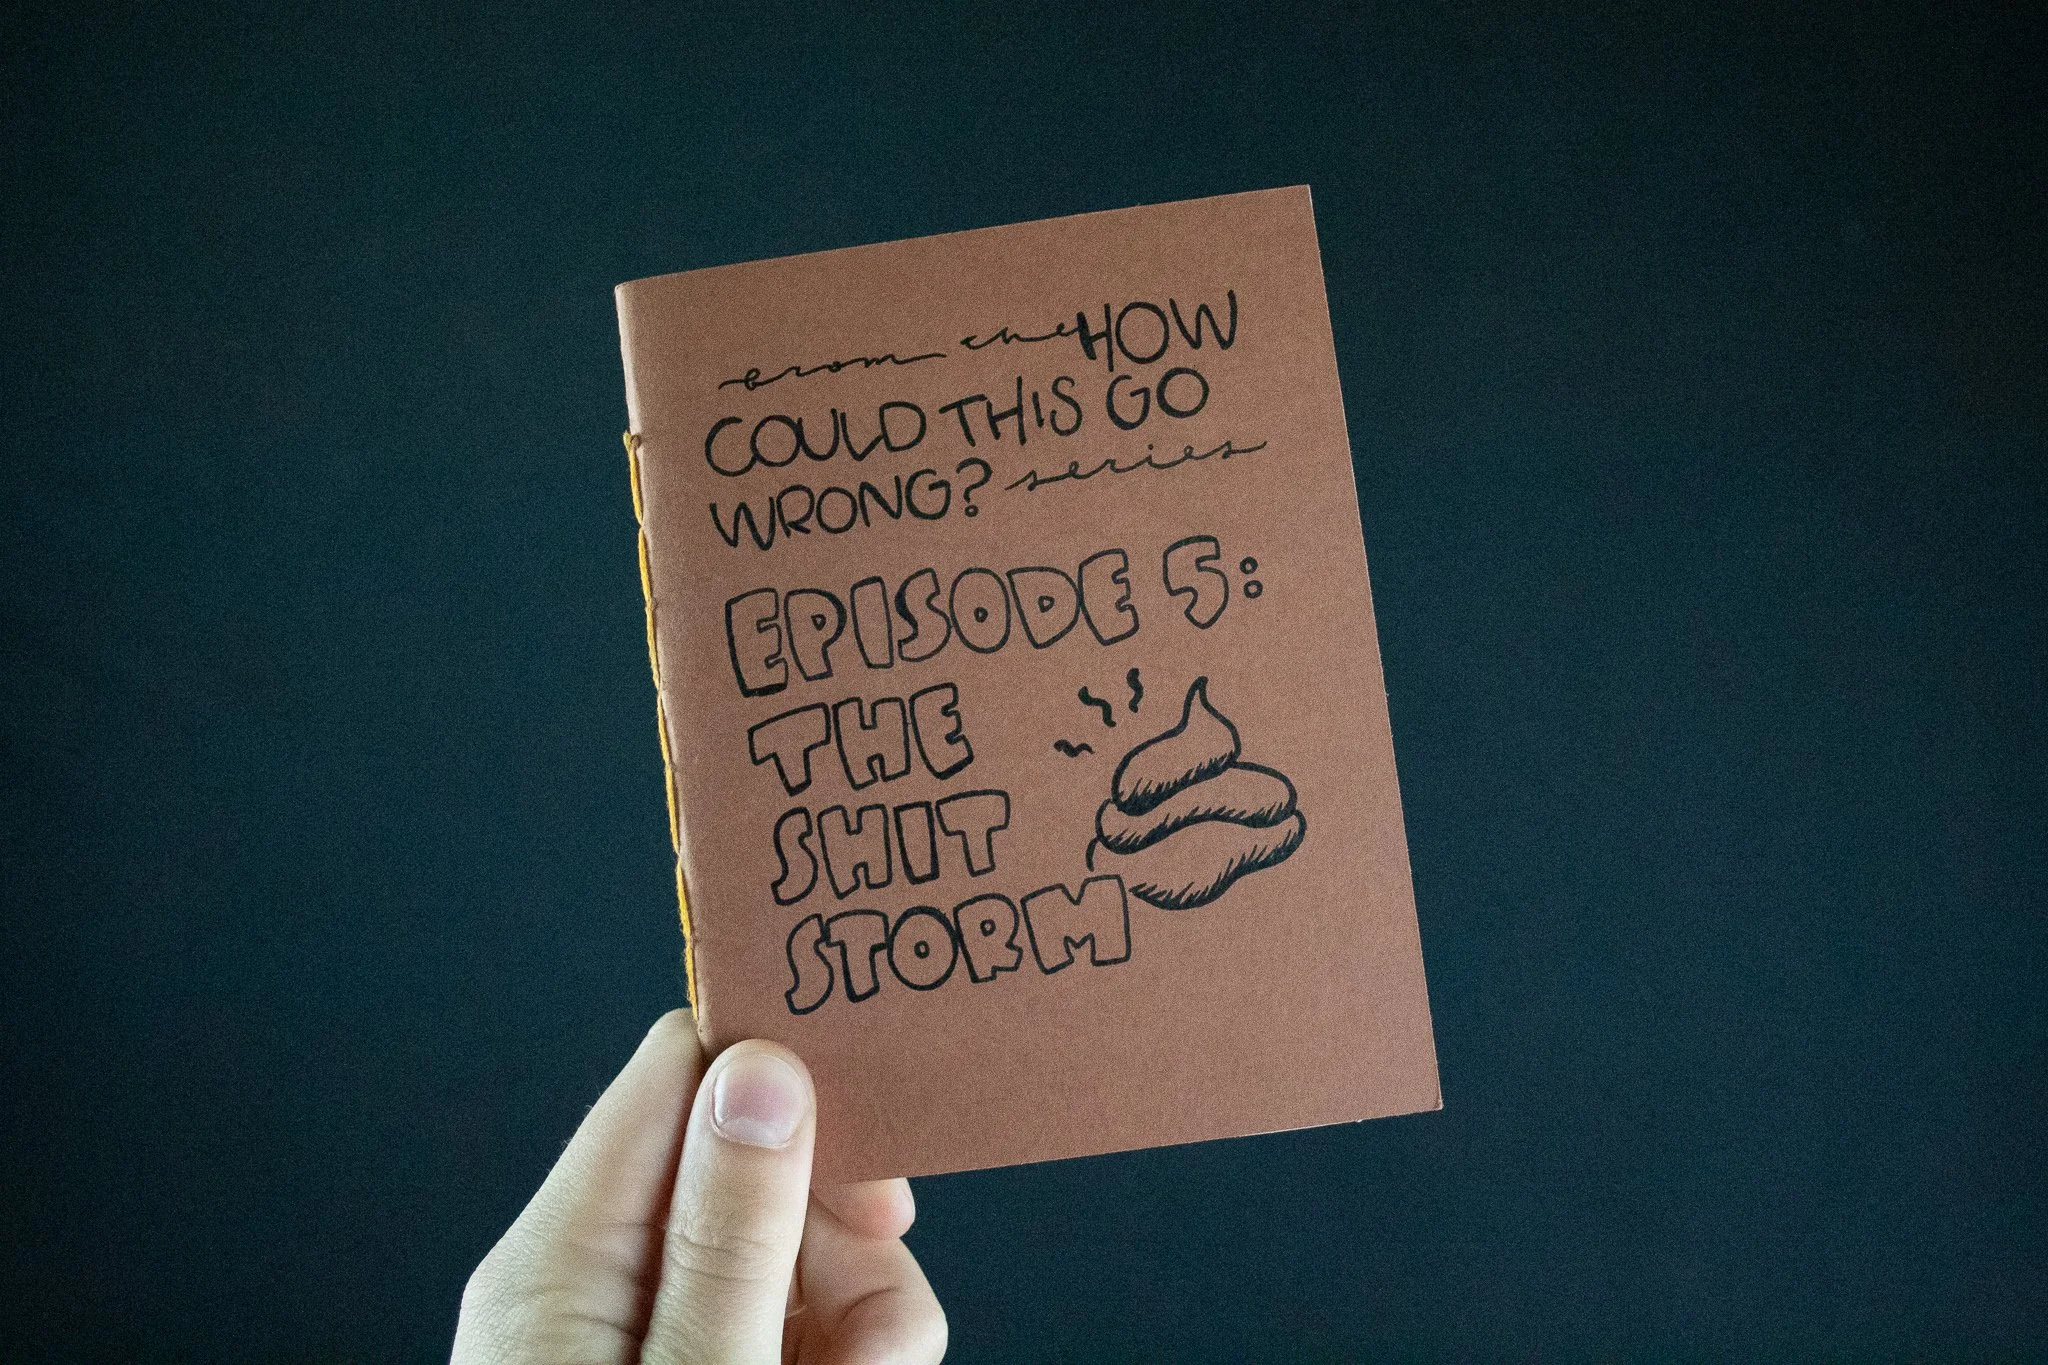 from the HOW
COULD THIS GO
WRONG? series
EPISODE 5:
THE
SHIT
STORM